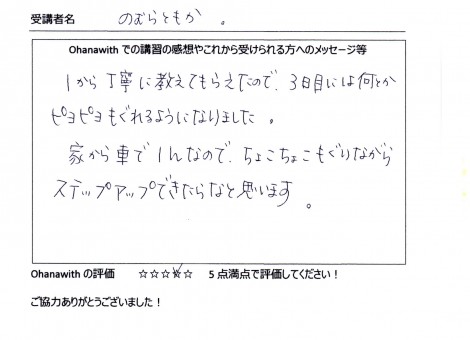 受講者名 のむらともか 。
Ohanawith での講習の感想やこれから受けられる方へのメッセージ等
1から丁寧に教えてもらえたので、3日目には何とか
ピヨピヨもぐれるようになりました。
家から車で1hなので、ちょこちょこもぐりながら
ステップアップできたらなと思います。
Ohanawith の評価 ☆☆☆☆☆ 5 点満点で評価してください！
ご協力ありがとうございました！